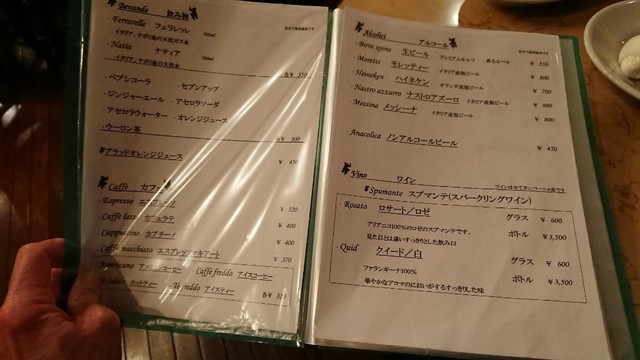 Bevande 飲み物
・Ferrarelle フェラレッレ 500ml
イタリア、ナポリ産の天然ガス水
・Natia ナティア 500ml
イタリア、ナポリ産の天然水
各¥ 550
・ペプシコーラ ・セブンアップ
・ジンジャーエール ・アセロラソーダ
・アセロラウォーター ・オレンジジュース
・ウーロン茶
¥ 300
・ブラッドオレンジジュース
¥ 450
Caffe カフェ
・Espresso エスプレッソ ¥ 320
Caffe latte カフェラテ ¥ 400
Cappuccino カプチーノ ¥ 400
Caffe macchiato エスプレッソマキアート ¥ 370
Americano アメリカンコーヒー Caffe freddo アイスコーヒー
ホットティー Te freddo アイスティー 各¥ 320
Alcolici アルコール
Birra spina 生ビール プレミアムモルツ 香るエール ¥ 550
Moretti モレッティー イタリア産瓶ビール ¥ 600
Heineken ハイネケン オランダ産瓶ビール ¥ 700
Nastro azzurro ナストロアズーロ イタリア産瓶ビール ¥ 600
Messina メッシーナ イタリア産瓶ビール ¥ 800
・Anacolica ノンアルコールビール ¥ 450
Vino ワイン
Spumante スプマンテ(スパークリングワイン)
・Rosato ロサート／ロゼ グラス ¥ 600
アリアニコ100%のロゼのスプマンテです。 ボトル ¥ 3,500
見た目とは違いすっきりとした飲み口
・Quid クイード／白 グラス ¥ 600
ファランギーナ100% ボトル ¥ 3,500
華やかなアロマのにおいがするすっきりした味